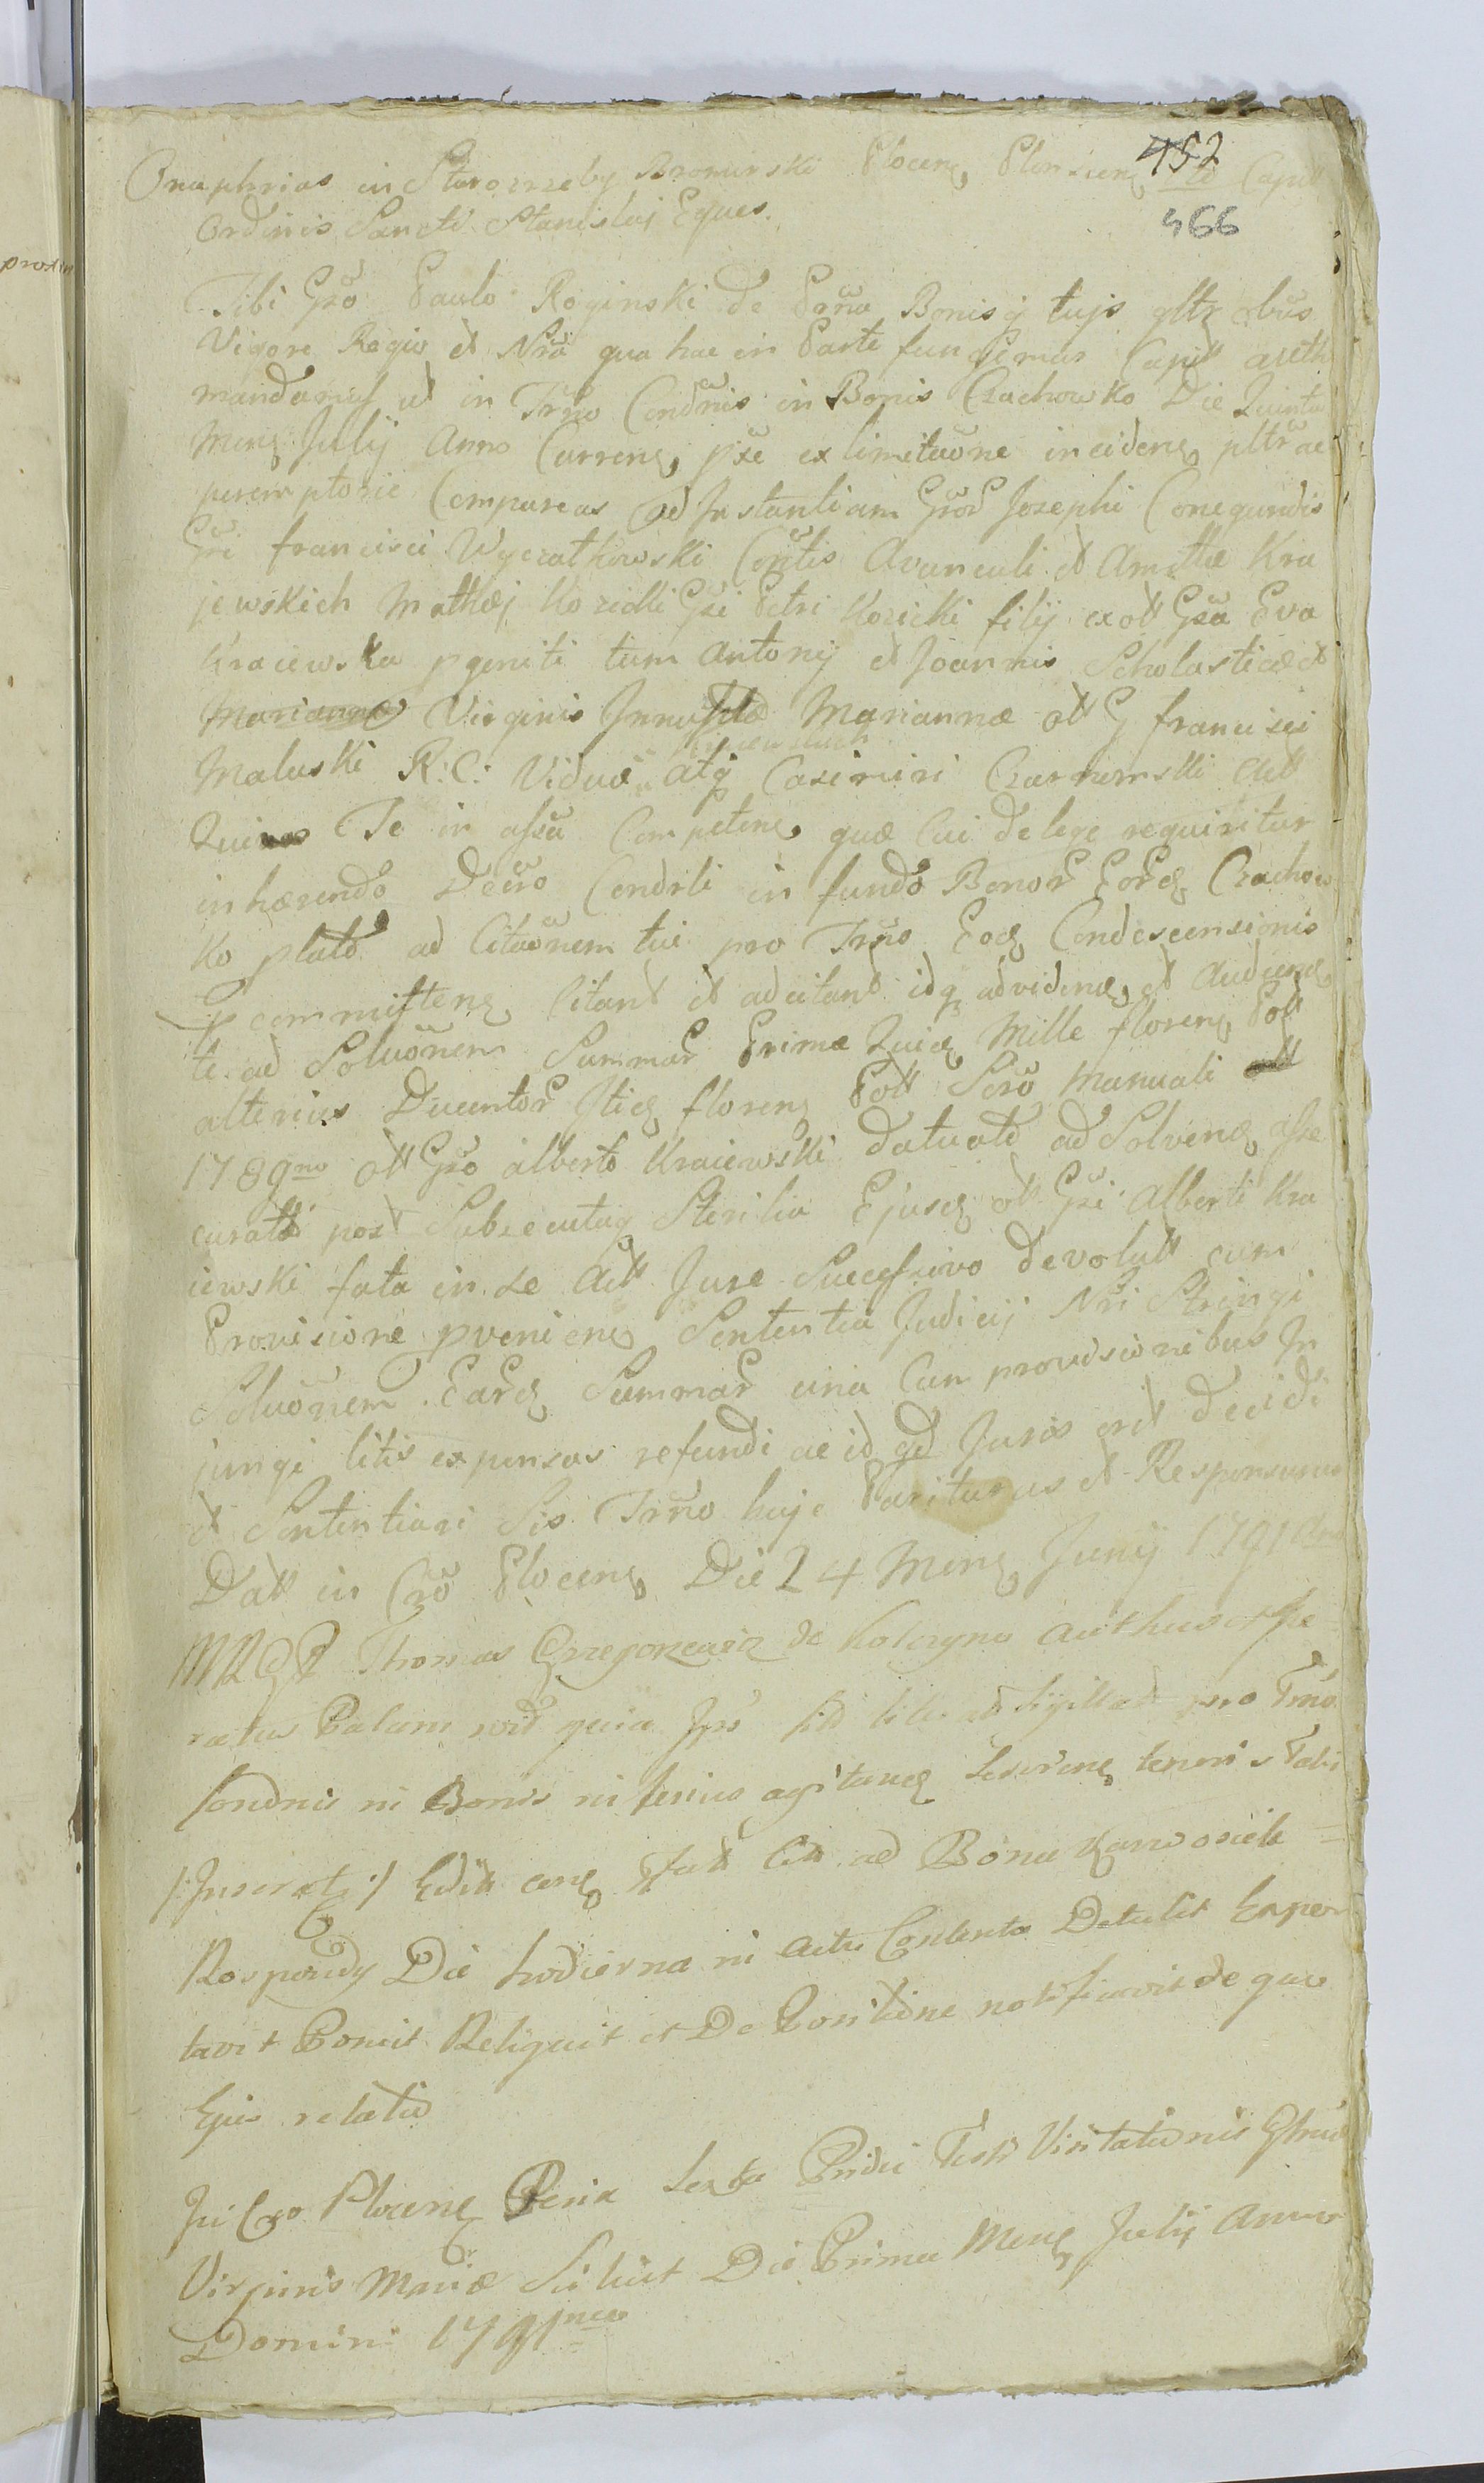 452
Onuphrius in Staroźrzeby Bromirski Plocens, Plonscens Capit
466
Ordinis Sancti Stanislai Eques.
proxim
Tibi Gso Paulo Roginski de Prna Bonisq tujs gltr obus
Vigore Regio et Nra qua hac in Parte fungemur Capit auth
mandamus ut in Trno Condnis in Bonis Czachowko Die Quinta
Mens July Anno Currens, pxe ex limitaone incidens, pltr ac
peremptorie Compareas Ad Instantiam Gsor Josephi Conegundis
Gsi Francisci Wyczatkowski Cortis Avunculi et Amittae Kra
jewskich Mathej Kozicki Gsi Petri Kozicki filij ex ott Gsa Eva
Kraiewska pgeniti tum Antonij et Joannis Scholasticae et
Mariannae Virginis Innuptae Mariannae ott G Francisci
Maluski R: C: Viduae atq Casimiri Czarnomski Act
Qui Te in assa Competens, quae Cui de lege requiritur
inhaerendo Decro Condrli in fundo Bonor Eord Czachow
ko plato ad Citaonem tui pro Trno Eod Condescensionis
committens Citant et adcitant idq ad vidend, et Audiend,
te ad Soluonem Summar Primae Quid Mille florens Poll
alterius Ducentor Itid florens Poll Scro Manuali
1789no ott Gso Alberto Kraiewski datuate ad Solvend, asse
curatt post Subsecutaq Sterilia Ejusd ott Gsi Alberti Kra
iewski fata in se Act Jure Successivo devolutt cum
Provisione pveniens Sententia Judicij Nri Stringi
Soluonem Eard Summar una Cum provisionibus In
jungi litis expensas refundi ac id qd Juris erit decidi
et Sententiari Sis Trno huic Pariturus et Responsurus
Datt in Cro Plocens, Die 24 Mens, Junij 1791 Ano
MRGP Thomas Grzegorzewicz de Kolczyno authus et Ju
ratus Palam rcd quia Ips lit et sigillat pro Trno
Condnis in Bonis inferius agitand tenoris Talis
/: Inserat :/ Edit cens ad Bona Karwosieki
Rospondy Die hodierna in actu Contenta Detulit Expor
tavit Ponuit Reliquit et De Positione notificavit de quo
Ejus relatio
In Cro Plocens Feria Sexta Pridie Festi Visitationis Gsae
Virginis Mariae Scilicet Die Prima Mens, Julij Anno
Domini 1791mo